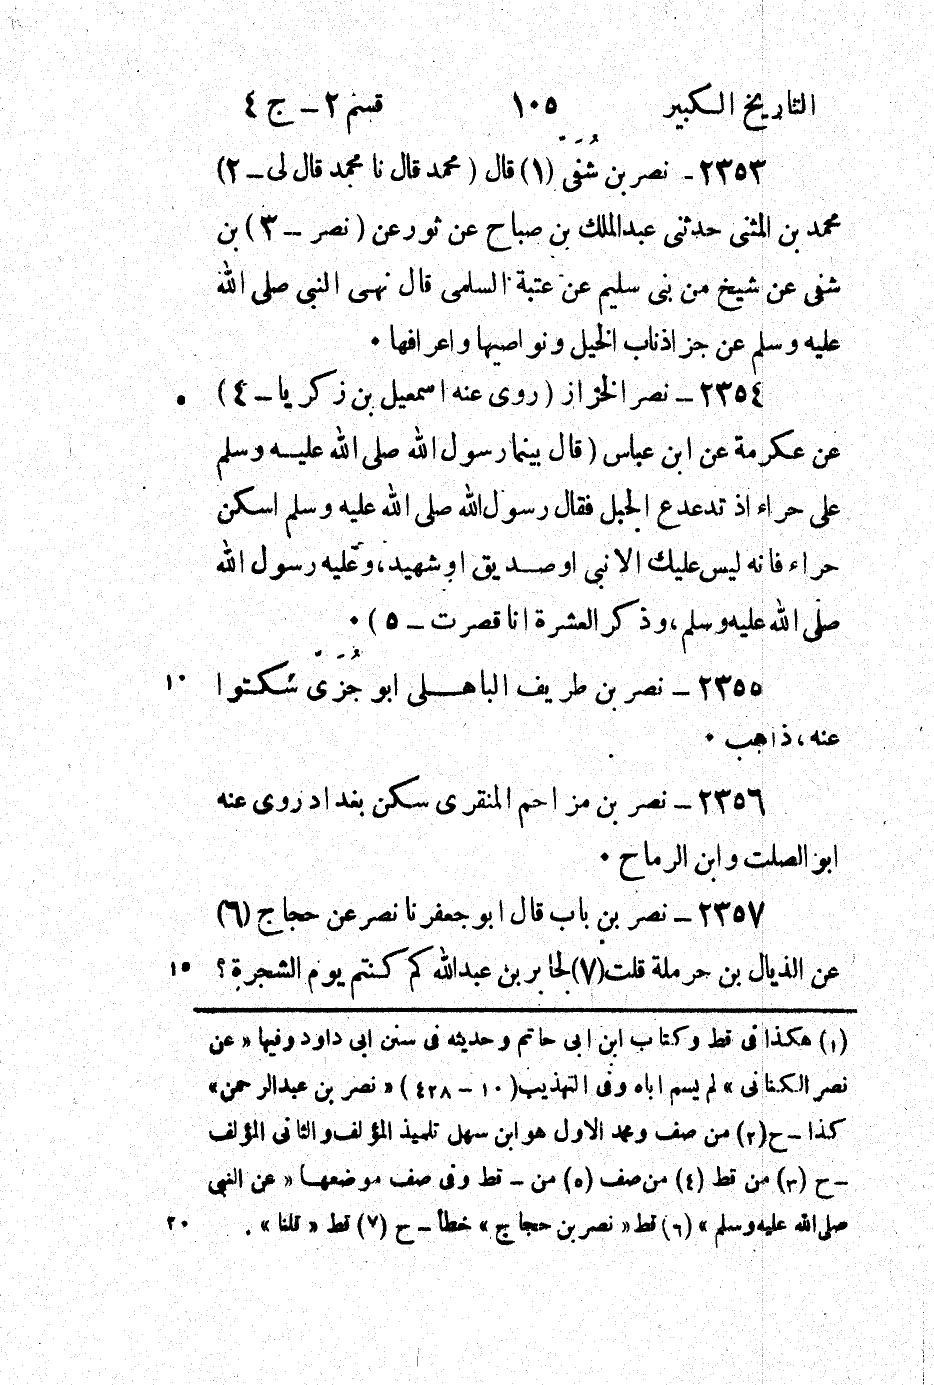 التاريخ الكبير ١٠٥ قسم ٢ – ج ٤
٢٣٥٣ - نصر بن شُفَىّ (١) قال ( محمد قال نا محمد قال لى – ٢)
محمد بن المثنى حدثنى عبدالملك بن صباح عن ثور عن ( نصر – ٣ ) بن
شفى عن شيخ من بنى سليم عن عتبة السلمى قال نهى النبي صلى الله
عليه وسلم عن جز اذناب الخيل ونواصيها واعرافها ٠
٢٣٥٤ – نصر الخزاز ( روى عنه اسمعيل بن زكريا – ٤ )
عن عكرمة عن ابن عباس ( قال بينما رسول الله صلى الله عليه وسلم
على حراء اذ تدعدع الجبل فقال رسول الله صلى الله عليه وسلم اسكن
حراء فانه ليس عليك الا نبى او صديق او شهيد، وعليه رسول الله
صلى الله عليه وسلم، وذكر العشرة انا قصرت – ٥ ) ٠
٢٣٥٥ – نصر بن طريف الباهلى ابو جُزَىّ سكتوا ١٠
عنه، ذاهب ٠
٢٣٥٦ – نصر بن مزاحم المنقرى سكن بغداد روى عنه
ابو الصلت وابن الرماح ٠
٢٣٥٧ – نصر بن باب قال ابو جعفر نا نصر عن حجاج (٦)
عن الذيال بن حرملة قلت (٧) لجابر بن عبدالله كم كنتم يوم الشجرة ؟ ١٥
(١) هكذا فى قط وكتاب ابن ابى حاتم وحديثه فى سنن ابى داود وفيها « عن
نصر الكنانى » لم يسم اباه وفى التهذيب ( ١٠ – ٤٢٨ ) « نصر بن عبدالرحمن»
كذا – ح (٢) من صف ومحمد الاول هو ابن سهل تلميذ المؤلف والثانى المؤلف
– ح (٣) من قط (٤) من صف (٥) من – قط وفى صف موضعها « عن النبي
صلى الله عليه وسلم » (٦) قط « نصر بن حجاج » خطأ – ح (٧) قط « قلنا » . ٢٠